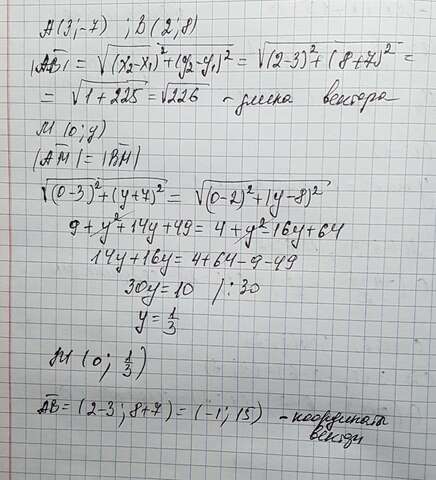 A(3;-7) ; B(2;8)
|AB| = √(x₂-x₁)²+(y₂-y₁)² = √(2-3)²+(8+7)² =
= √1+225 = √226 - длина вектора
M(0;y)
|AM| = |BM|
√(0-3)²+(y+7)² = √(0-2)²+(y-8)²
9+y²+14y+49 = 4+y²-16y+64
14y+16y = 4+64-9-49
30y = 10 /:30
y = 1/3
M(0; 1/3)
AB = (2-3; 8+7) = (-1; 15) - координаты
вектора